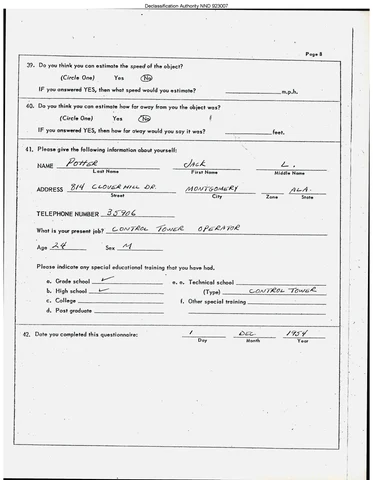 Declassification Authority NND 923007
Page 8
39. Do you think you can estimate the speed of the object?
(Circle One) Yes No
IF you answered YES, then what speed would you estimate? m.p.h.
40. Do you think you can estimate how far away from you the object was?
(Circle One) Yes No
IF you answered YES, then how far away would you say it was? feet.
41. Please give the following information about yourself:
NAME POTTER JACK L.
Last Name First Name Middle Name
ADDRESS 814 CLOVER HILL DR. MONTGOMERY ALA.
Street City Zone State
TELEPHONE NUMBER 35906
What is your present job? CONTROL TOWER OPERATOR
Age 24 Sex M
Please indicate any special educational training that you have had.
a. Grade school ✓ e. e. Technical school
b. High school ✓ (Type) CONTROL TOWER
c. College f. Other special training
d. Post graduate
42. Date you completed this questionnaire: 1 DEC. 1954
Day Month Year